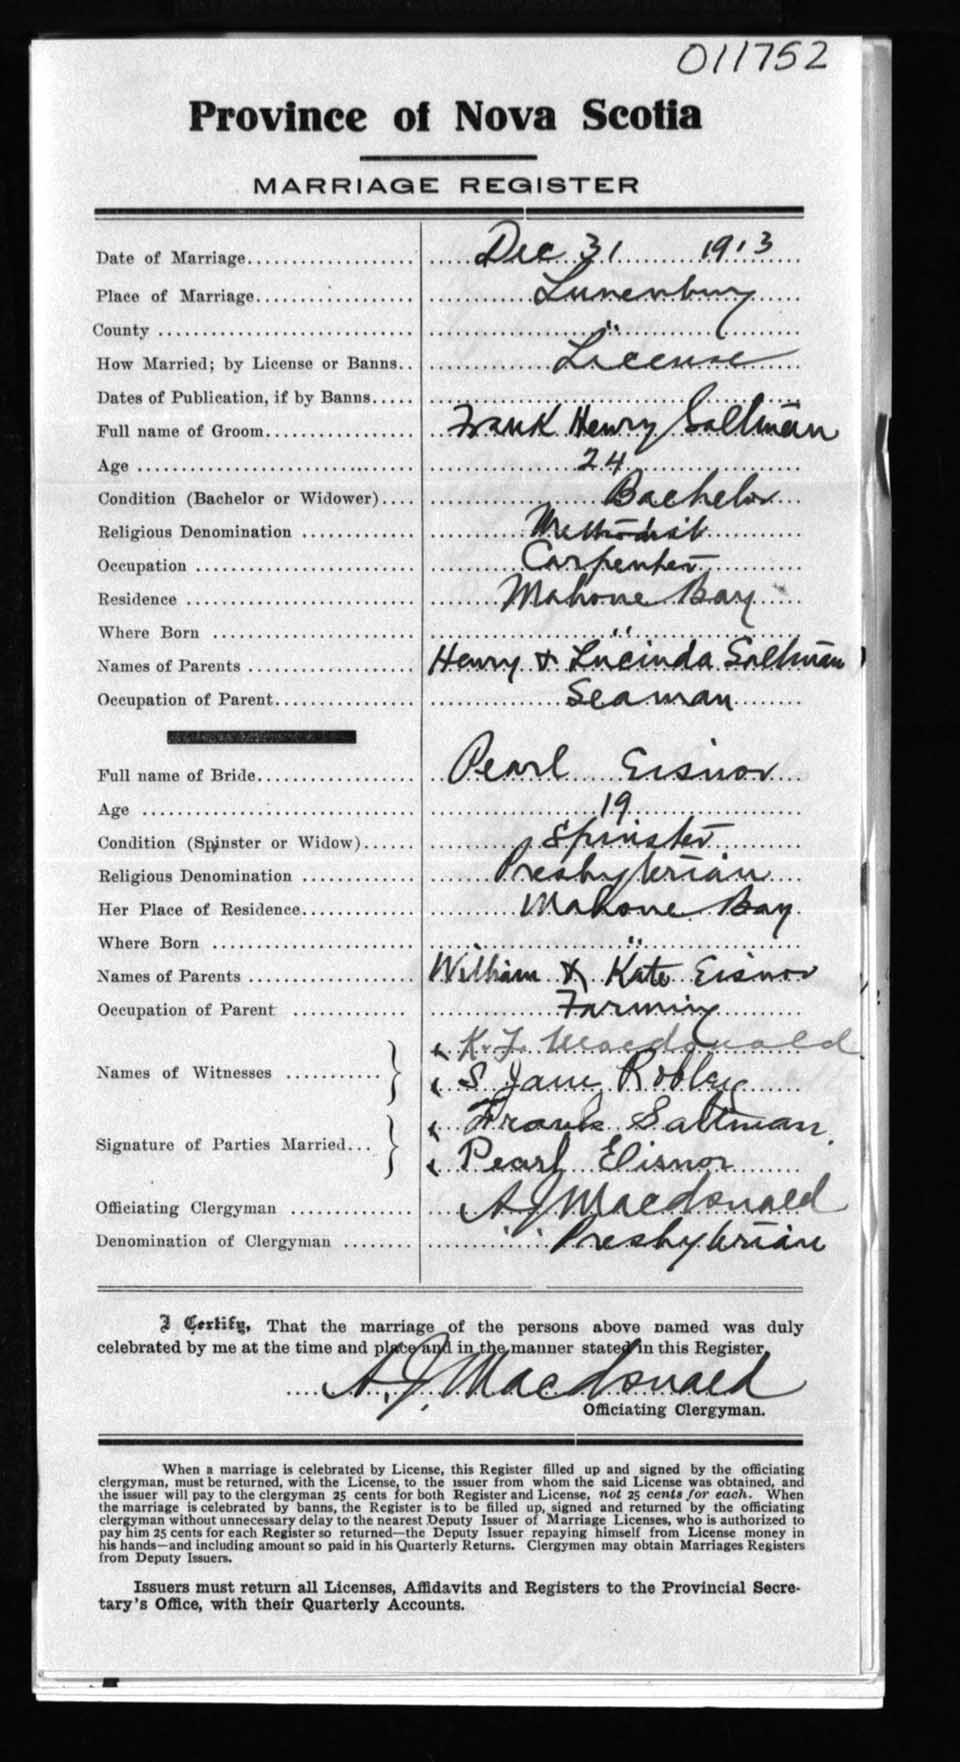 011752
Province of Nova Scotia
MARRIAGE REGISTER
Date of Marriage Dec 31 1913
Place of Marriage Lunenburg
County "
How Married; by License or Banns License
Dates of Publication, if by Banns
Full name of Groom Frank Henry Saltman
Age 24
Condition (Bachelor or Widower) Bachelor
Religious Denomination Methodist
Occupation Carpenter
Residence Mahone Bay
Where Born "
Names of Parents Henry & Lucinda Saltman
Occupation of Parent Seaman
Full name of Bride Pearl Eisnor
Age 19
Condition (Spinster or Widow) Spinster
Religious Denomination Presbyterian
Her Place of Residence Mahone Bay
Where Born "
Names of Parents William & Kate Eisnor
Occupation of Parent Farming
K. J. Macdonald
Names of Witnesses
S Jane Robley
Frank Saltman
Signature of Parties Married
Pearl Eisnor
Officiating Clergyman A J Macdonald
Denomination of Clergyman Presbyterian
I Certify, That the marriage of the persons above named was duly
celebrated by me at the time and place and in the manner stated in this Register.
A. J. Macdonald
Officiating Clergyman.
When a marriage is celebrated by License, this Register filled up and signed by the officiating
clergyman, must be returned, with the License, to the issuer from whom the said License was obtained, and
the issuer will pay to the clergyman 25 cents for both Register and License, not 25 cents for each. When
the marriage is celebrated by banns, the Register is to be filled up, signed and returned by the officiating
clergyman without unnecessary delay to the nearest Deputy Issuer of Marriage Licenses, who is authorized to
pay him 25 cents for each Register so returned—the Deputy Issuer repaying himself from License money in
his hands—and including amount so paid in his Quarterly Returns. Clergymen may obtain Marriages Registers
from Deputy Issuers.
Issuers must return all Licenses, Affidavits and Registers to the Provincial Secre-
tary's Office, with their Quarterly Accounts.